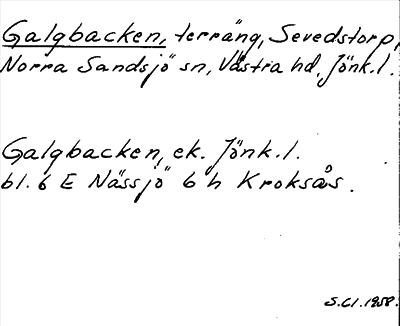 Galgbacken, terräng, Sevedstorp,
Norra Sandsjö sn, Västra hd. Jönk.l.
Galgbacken, ek. Jönk.l.
bl. 6 E Nässjö 6 h Kroksås.
S.Cl. 1958.